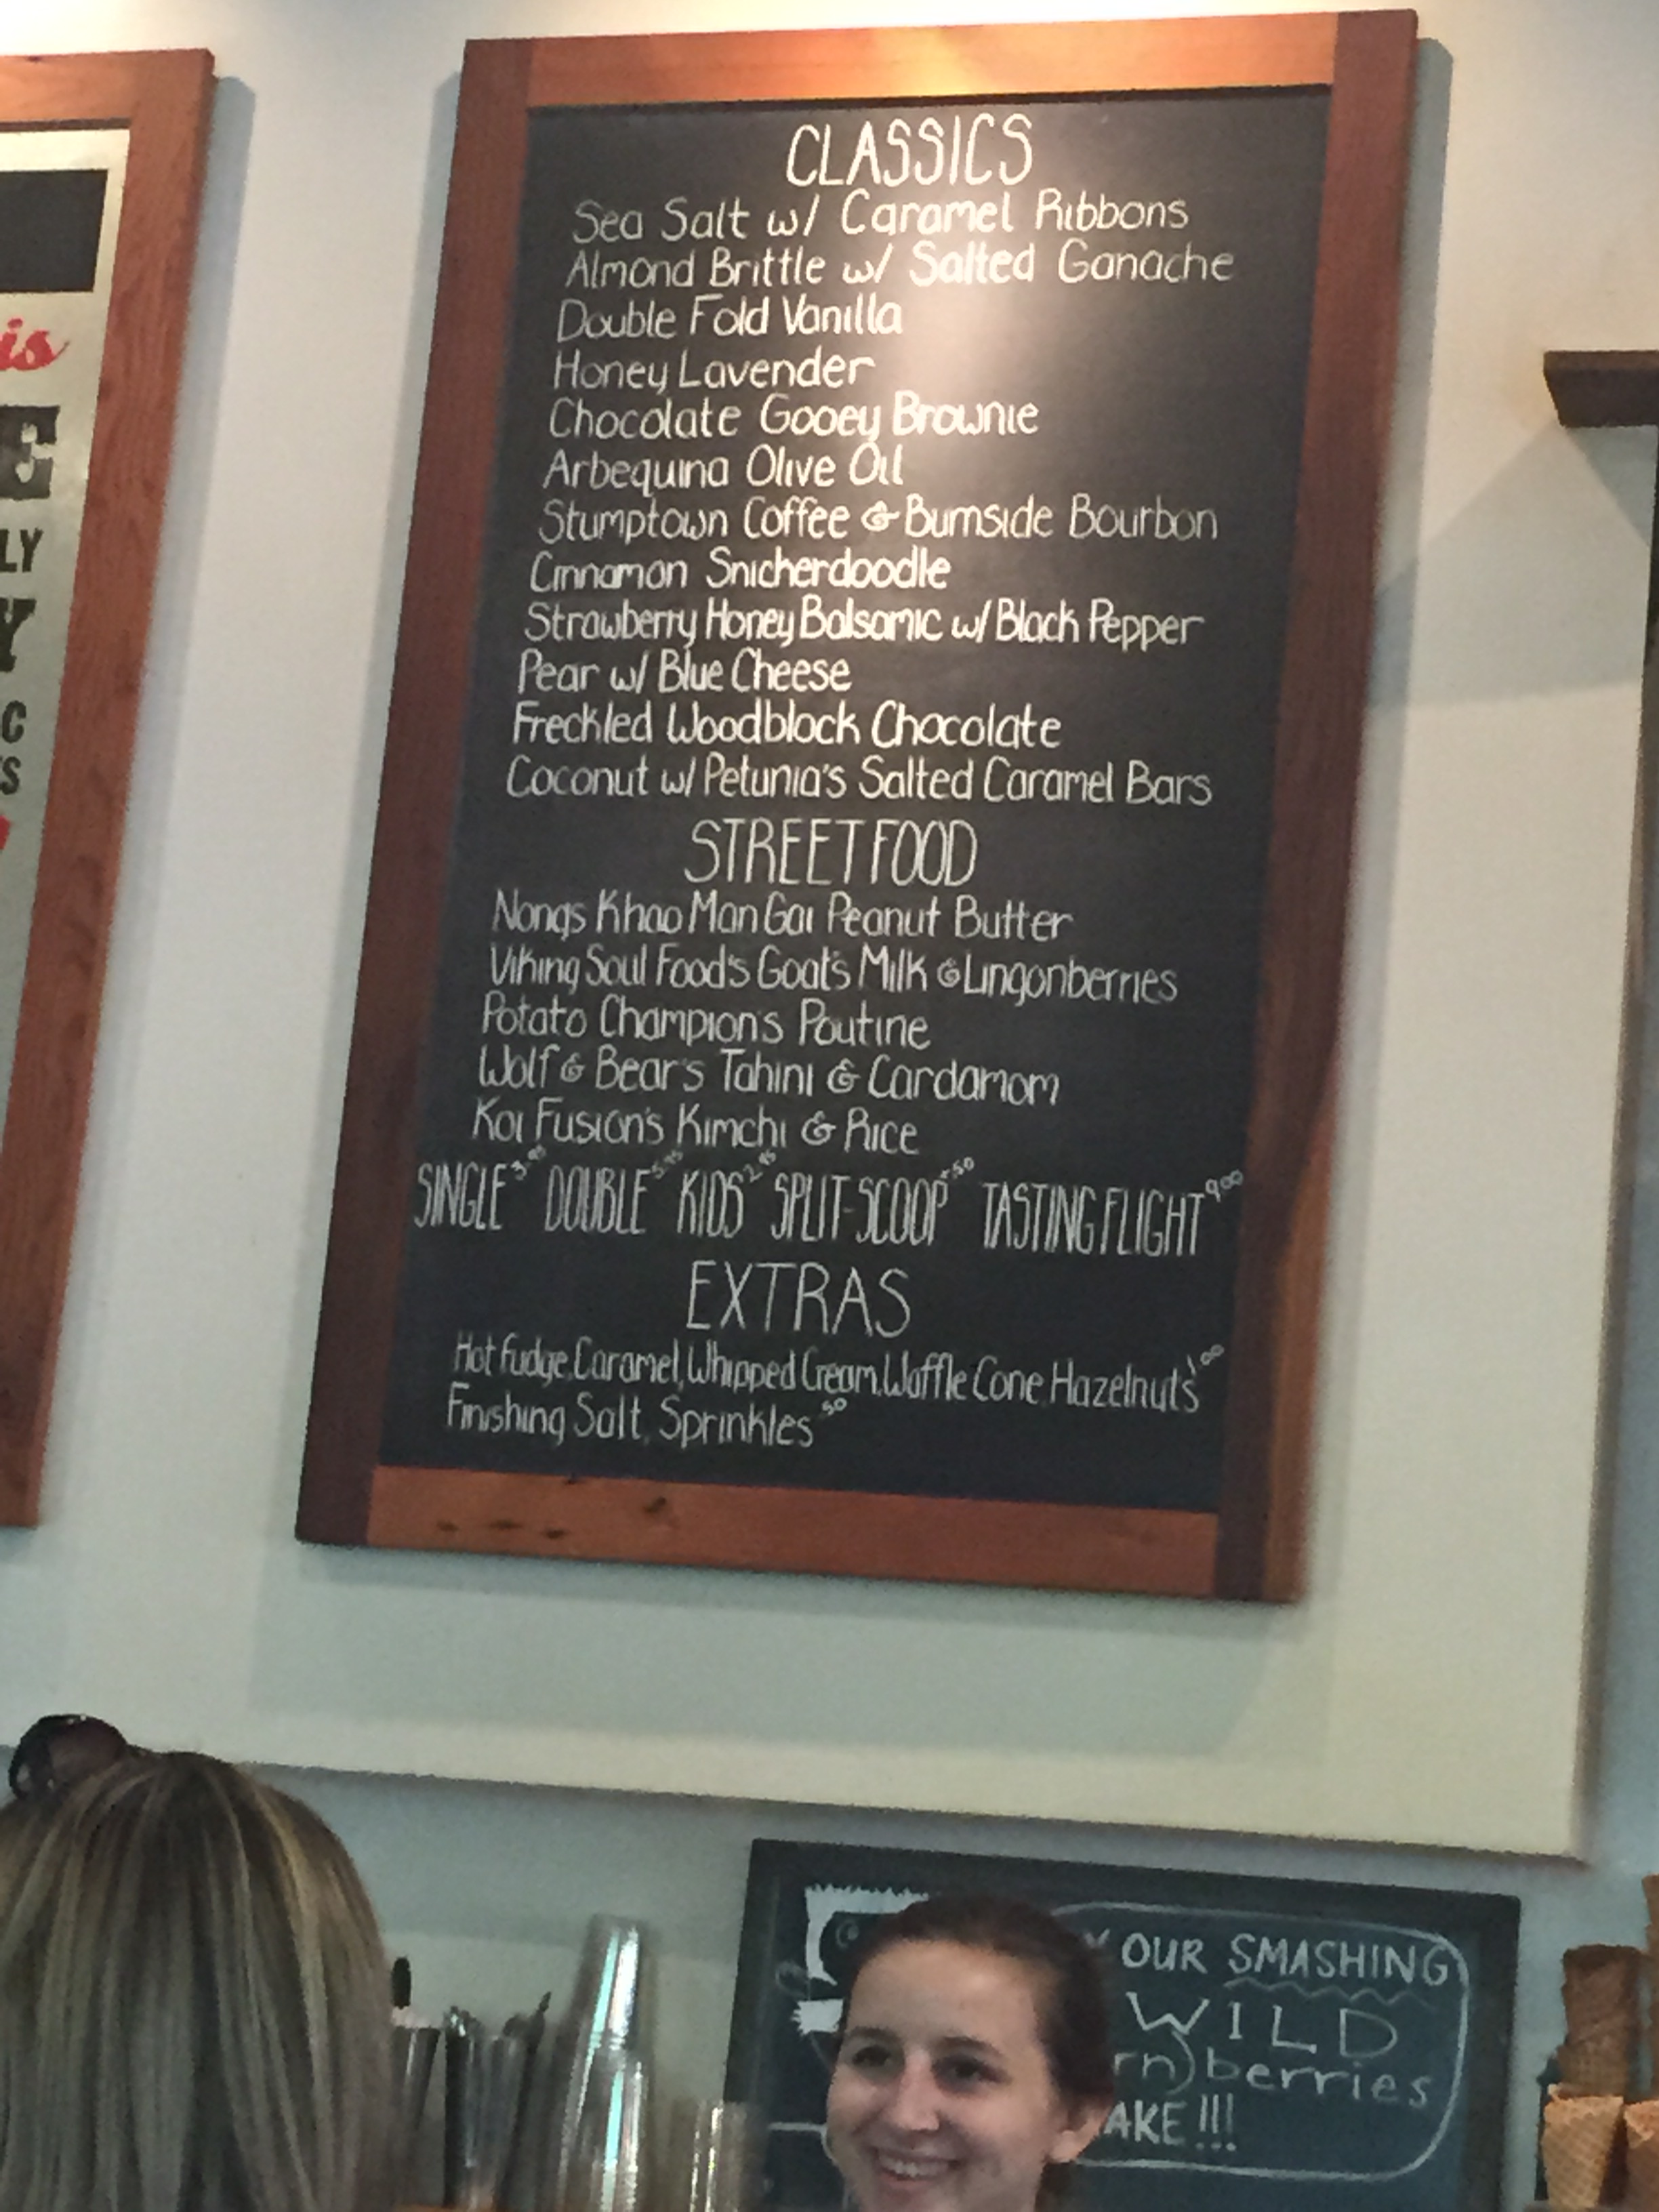 CLASSICS
Sea Salt w/ Caramel Ribbons
Almond Brittle w/ Salted Ganache
Double Fold Vanilla
Honey Lavender
Chocolate Gooey Brownie
Arbequina Olive Oil
Stumptown Coffee & Burnside Bourbon
Cinnamon Snickerdoodle
Strawberry Honey Balsamic w/ Black Pepper
Pear w/ Blue Cheese
Freckled Woodblock Chocolate
Coconut w/ Petunia's Salted Caramel Bars
STREET FOOD
Nongs Khao Man Gai Peanut Butter
Viking Soul Food's Goat's Milk & Lingonberries
Potato Champion's Poutine
Wolf & Bear's Tahini & Cardamom
Koi Fusion's Kimchi & Rice
SINGLE 3.95 DOUBLE 5.95 KIDS 2.95 SPLIT-SCOOP +.50 TASTING FLIGHT 9.00
EXTRAS
Hot Fudge, Caramel, Whipped Cream, Waffle Cone, Hazelnuts 1.00
Finishing Salt, Sprinkles .50
is
E
LY
Y
C
S
OUR SMASHING
WILD
rn) berries
AKE!!!